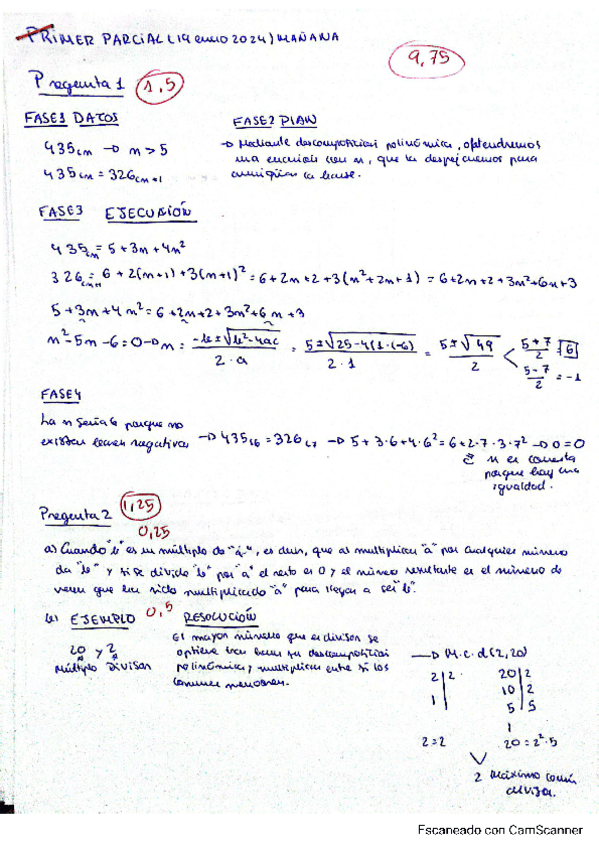 PRIMER PARCIAL (19 enero 2024) MAÑANA
9,75
Pregunta 1 1,5
FASE1 DATOS
435₍ₙ → n > 5
435₍ₙ = 326₍ₙ₊₁
FASE2 PLAN
→ Mediante descomposición polinómica, obtendremos
una ecuación con n, que la despejaremos para
averiguar la base.
FASE3 EJECUCIÓN
435₍ₙ = 5 + 3n + 4n²
326₍ₙ₊₁ = 6 + 2(n+1) + 3(n+1)² = 6 + 2n + 2 + 3(n² + 2n + 1) = 6 + 2n + 2 + 3n² + 6n + 3
5 + 3n + 4n² = 6 + 2n + 2 + 3n² + 6n + 3
n² - 5n - 6 = 0 → n = (-b ± √(b² - 4ac)) / (2·a) = (5 ± √(25 - 4(1·(-6)))) / (2·1) = (5 ± √49) / 2 < (5+7)/2 = 6
(5-7)/2 = -1
FASE4
La n será 6 porque no
existen bases negativas → 435₍₆ = 326₍₇ → 5 + 3·6 + 4·6² = 6 + 2·7·3·7² → 0 = 0
n es correcta
porque hay una
igualdad.
Pregunta 2 1,25
0,25
a) Cuando "b" es un múltiplo de "a", es decir, que al multiplicar "a" por cualquier número
da "b" y si se divide "b" por "a" el resto es 0 y el número resultante es el número de
veces que ha sido multiplicado "a" para llegar a ser "b".
b) EJEMPLO 0,5 RESOLUCIÓN
20 y 2
múltiplo divisor
El mayor número que es divisor se
obtiene tras hacer su descomposición
polinómica y multiplicar entre sí los
comunes menores.
→ M.c.d(2,20)
2 | 2
1
2 = 2
20 | 2
10 | 2
5 | 5
1
20 = 2²·5
2 máximo común
divisor.
Escaneado con CamScanner